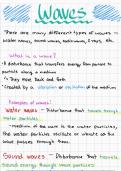 Waves
There are many different types of waves -
water waves, sound waves, radio waves, X-rays, etc.
What is a wave?
A disturbance that transfers energy from particle to
particle along a medium
They move Back and Forth
Created by a vibration or oscillation of the medium
Examples of waves:
Water waves - Disturbance that travels through
water particles.
- Medium of the wave is the water particles,
the water particles oscillate or vibrate as the
wave passes through them.
Sound waves - Disturbance that travels
sound energy through wave particles